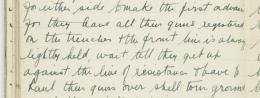 for either side to make the first advance
for they have all their guns registered
on the trenches & the front line is always
lightly held, wait till they get up
against the line of resistance & have to
haul their guns over shell torn ground